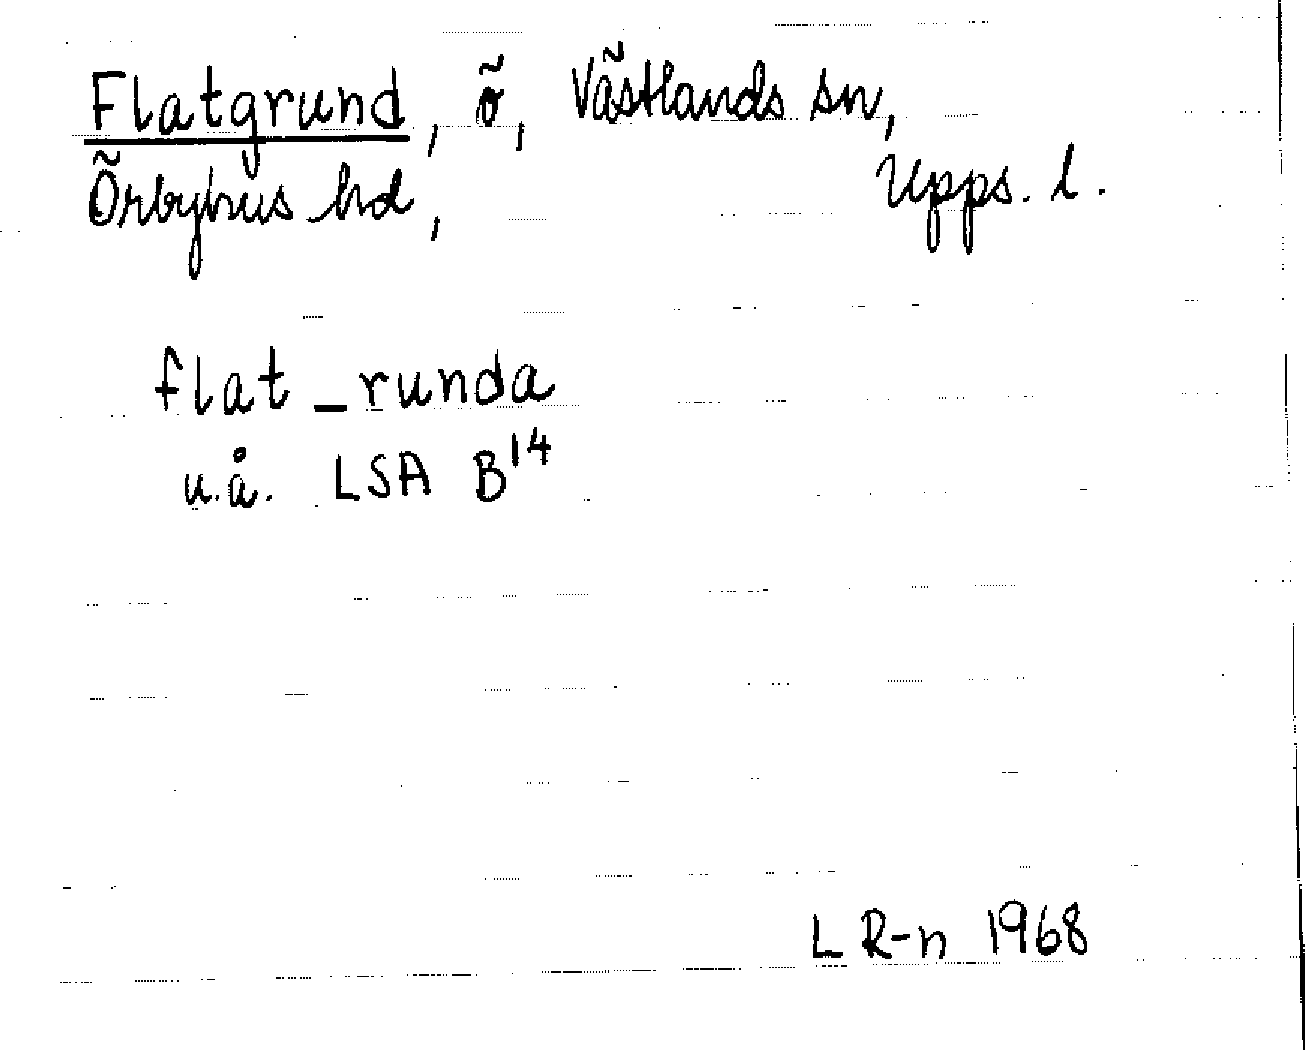 Flatgrund, ö, Västlands sn,
Örbyhus hd, Upps. l.
flat_runda
u.å. LSA B¹⁴
L R-n 1968